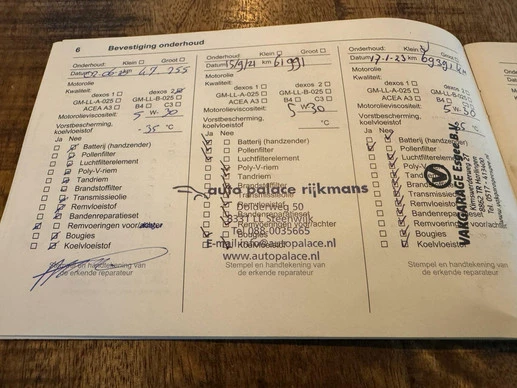 6 Bevestiging onderhoud
Onderhoud: Klein Groot
Datum km 47.255
Motorolie
Kwaliteit:
dexos 1 dexos 2
GM-LL-A-025 GM-LL-B-025
ACEA A3 B4 C3
Motorolieviscositeit:
5 W- 30
Vorstbescherming,
koelvloeistof -35 °C
Ja Nee
Batterij (handzender)
Pollenfilter
Luchtfilterelement
Poly-V-riem
Tandriem
Brandstoffilter
Transmissieolie
Remvloeistof
Bandenreparatieset
Remvoeringen voor/achter
Bougies
Koelvloeistof
Stempel en handtekening van
de erkende reparateur
Onderhoud: Klein Groot
Datum 15/9/21 km 61991
Motorolie
Kwaliteit:
dexos 1 dexos 2
GM-LL-A-025 GM-LL-B-025
ACEA A3 B4 C3
Motorolieviscositeit:
5 W- 30
Vorstbescherming,
koelvloeistof °C
Ja Nee
Batterij (handzender)
Pollenfilter
Luchtfilterelement
Poly-V-riem
Tandriem
Brandstoffilter
Transmissieolie
Remvloeistof
Bandenreparatieset
Remvoeringen voor/achter
Bougies
Koelvloeistof
auto palace rijkmans
Dolderweg 50
8331 LL Steenwijk
Tel. 088 0035665
E-mail info@autopalace.nl
www.autopalace.nl
Stempel en handtekening van
de erkende reparateur
Onderhoud: Klein Groot
Datum km
Motorolie
Kwaliteit:
dexos 1 dexos 2
GM-LL-A-025 GM-LL-B-025
ACEA A3 B4 C3
Motorolieviscositeit:
5 W- 30
Vorstbescherming,
koelvloeistof °C
Ja Nee
Batterij (handzender)
Pollenfilter
Luchtfilterelement
Poly-V-riem
Tandriem
Brandstoffilter
Transmissieolie
Remvloeistof
Bandenreparatieset
Remvoeringen voor/achter
Bougies
Koelvloeistof
VAKGARAGE Esgee B.V.
Stempel en handtekening van
de erkende reparateur